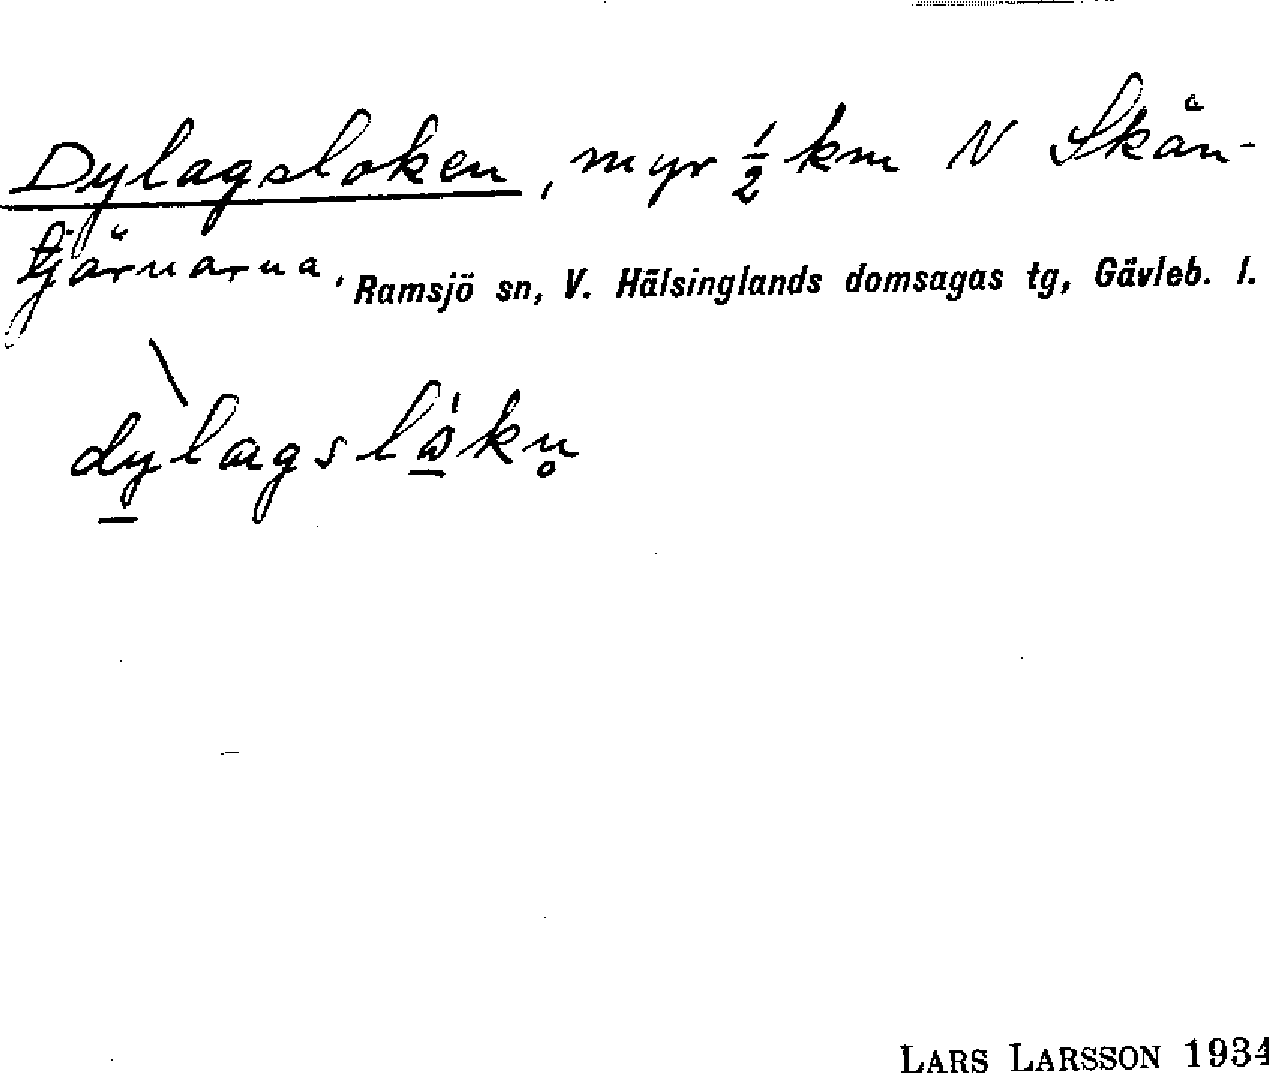 Dylagsloken, myr ½ km N Skån-
tjärnarna. Ramsjö sn, V. Hälsinglands domsagas tg, Gävleb. l.
LARS LARSSON 1934